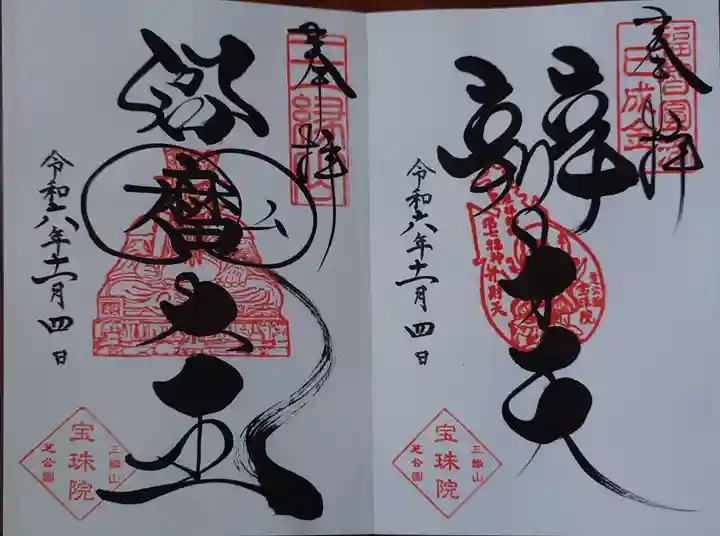 奉拝
巳成金
辨才天
七福神弁財天
芝公園
宝珠院
令和六年十一月四日
三縁山
宝珠院
芝公園
奉拝
三縁山
閻魔大王
令和六年十一月四日
三縁山
宝珠院
芝公園